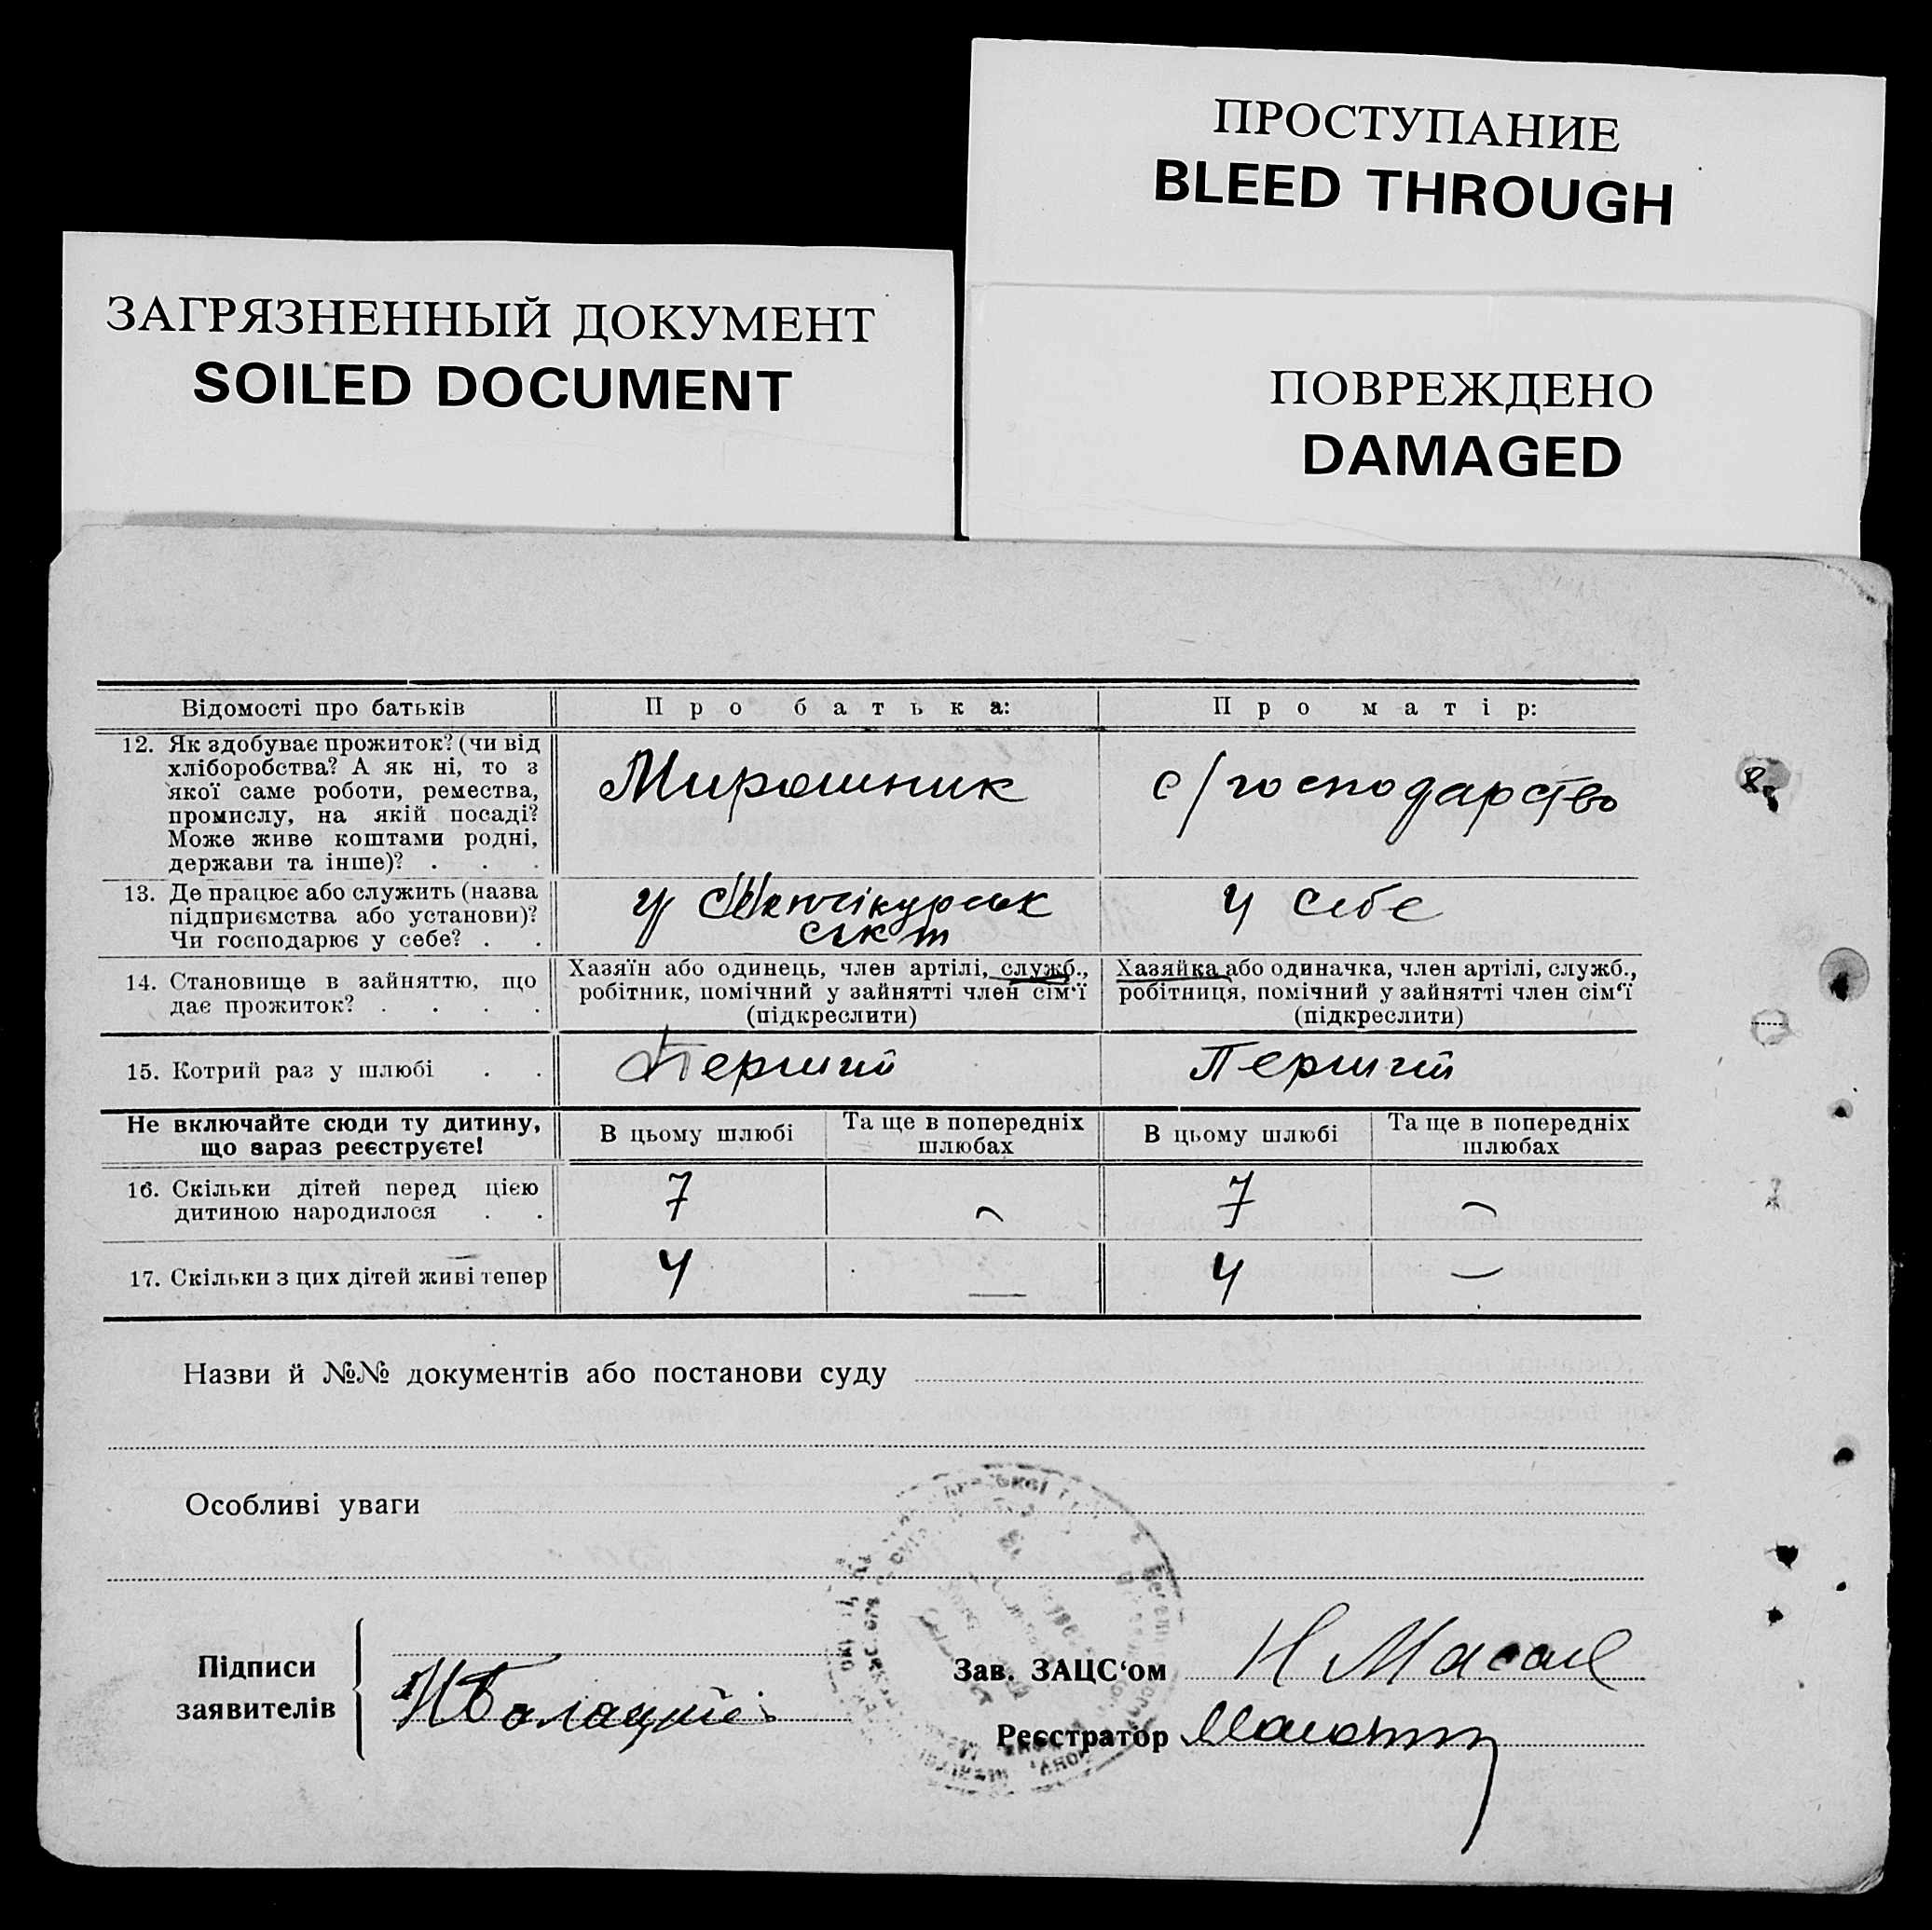 ПРОСТУПАНИЕ
BLEED THROUGH
ЗАГРЯЗНЕННЫЙ ДОКУМЕНТ
SOILED DOCUMENT
ПОВРЕЖДЕНО
DAMAGED
Відомості про батьків Про батька: Про матір:
12. Як здобуває прожиток? (чи від
хліборобства? А як ні, то з
якої саме роботи, ремества,
промислу, на якій посаді?
Може живе коштами родні,
держави та інше)? . . .
Мирошник
с/господарство
13. Де працює або служить (назва
підприємства або установи)?
Чи господарює у себе? . .
у
у себе
14. Становище в зайняттю, що
дає прожиток? . . . .
Хазяїн або одинець, член артілі, служб.,
робітник, помічний у зайнятті член сім'ї
(підкреслити)
Хазяйка або одиначка, член артілі, служб.,
робітниця, помічний у зайнятті член сім'ї
(підкреслити)
15. Котрий раз у шлюбі . . Перший Перший
Не включайте сюди ту дитину,
що вараз реєструєте!
В цьому шлюбі
Та ще в попередніх
шлюбах
В цьому шлюбі
Та ще в попередніх
шлюбах
16. Скільки дітей перед цією
дитиною народилося . .
7 – 7 –
17. Скільки з цих дітей живі тепер 4 — 4 —
Назви й №№ документів або постанови суду
Особливі уваги
Підписи
заявителів
Зав. ЗАЦС'ом
Реєстратор